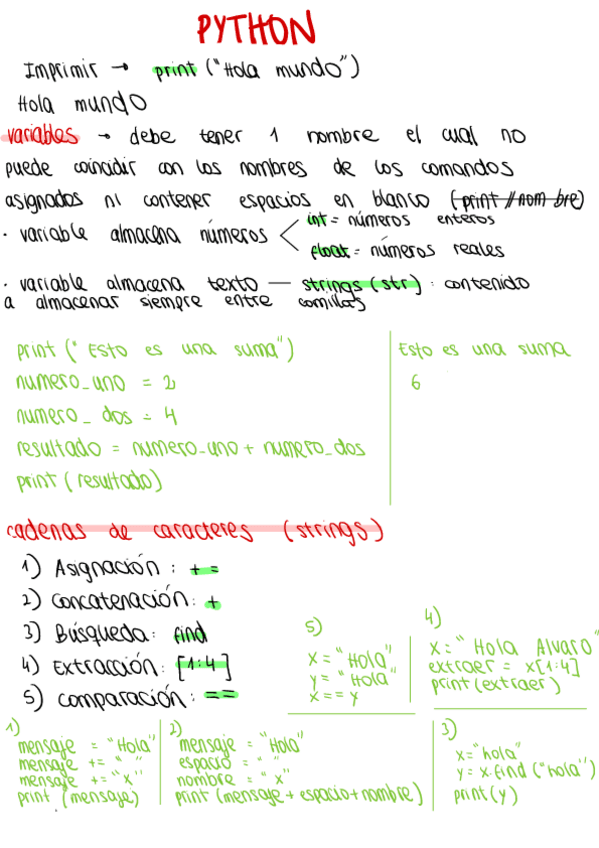 PYTHON
Imprimir → print ("Hola mundo")
Hola mundo
variables → debe tener 1 nombre el cual no
puede coincidir con los nombres de los comandos
asignados ni contener espacios en blanco (print // nom bre)
· variable almacena números < int = números enteros
float = números reales
· variable almacena texto — strings (str) : contenido
a almacenar siempre entre comillas
print (" Esto es una suma")
numero_uno = 2
numero_ dos = 4
resultado = numero_uno + numero_dos
print (resultado)
Esto es una suma
6
cadenas de caracteres (strings)
1) Asignación : + =
2) Concatenación: +
3) Búsqueda: find
4) Extracción: [1:4]
5) comparación: ==
5)
x = "Hola"
y = "Hola"
x == y
4)
x = "Hola Alvaro"
extraer = x[1:4]
print (extraer)
1)
mensaje = "Hola"
mensaje += " "
mensaje += "x"
print (mensaje)
2)
mensaje = "Hola"
espacio = " "
nombre = "x"
print (mensaje + espacio + nombre)
3)
x="hola"
y = x.find ("hola")
print (y)